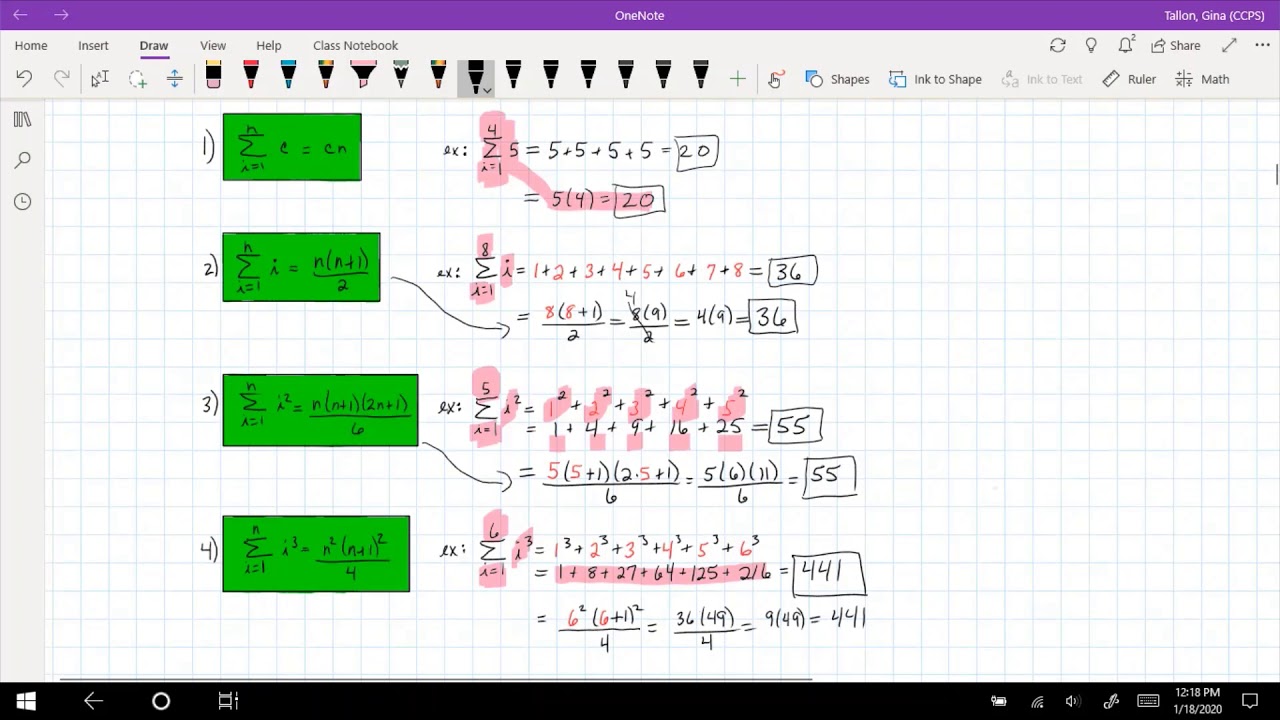 OneNote
Tallon, Gina (CCPS)
Home Insert Draw View Help Class Notebook Share
Shapes Ink to Shape Ink to Text Ruler Math
1) \sum_{i=1}^{n} c = cn
ex: \sum_{i=1}^{4} 5 = 5+5+5+5 = 20
= 5(4) = 20
2) \sum_{i=1}^{n} i = \frac{n(n+1)}{2}
ex: \sum_{i=1}^{8} i = 1+2+3+4+5+6+7+8 = 36
= \frac{8(8+1)}{2} = \frac{8(9)}{2} = 4(9) = 36
4
3) \sum_{i=1}^{n} i^2 = \frac{n(n+1)(2n+1)}{6}
ex: \sum_{i=1}^{5} i^2 = 1^2 + 2^2 + 3^2 + 4^2 + 5^2
= 1 + 4 + 9 + 16 + 25 = 55
= \frac{5(5+1)(2·5+1)}{6} = \frac{5(6)(11)}{6} = 55
4) \sum_{i=1}^{n} i^3 = \frac{n^2(n+1)^2}{4}
ex: \sum_{i=1}^{6} i^3 = 1^3 + 2^3 + 3^3 + 4^3 + 5^3 + 6^3
= 1 + 8 + 27 + 64 + 125 + 216 = 441
= \frac{6^2(6+1)^2}{4} = \frac{36(49)}{4} = 9(49) = 441
12:18 PM
1/18/2020